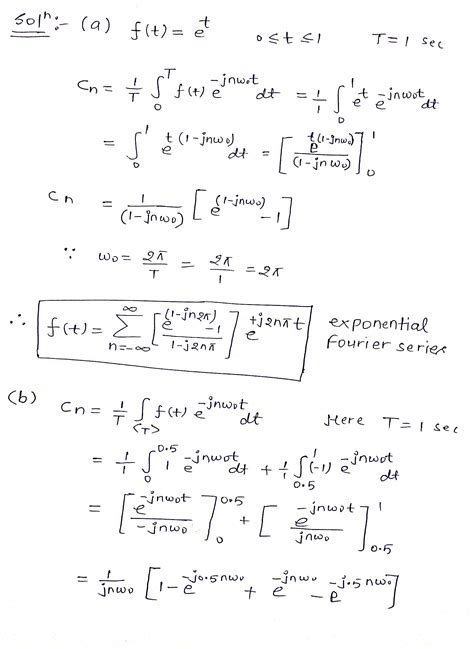 Solⁿ:- (a) f(t) = e^t 0 ≤ t ≤ 1 T = 1 sec
Cn = 1/T ∫_0^T f(t) e^{-jnω₀t} dt = 1/1 ∫_0^1 e^t e^{-jnω₀t} dt
= ∫_0^1 e^{t(1-jnω₀)} dt = [e^{t(1-jnω₀)}/(1-jnω₀)]_0^1
Cn = 1/(1-jnω₀) [e^{(1-jnω₀)} - 1]
∵ ω₀ = 2π/T = 2π/1 = 2π
∴ f(t) = ∑_{n=-∞}^{∞} [(e^{(1-jn2π)} - 1)/(1-j2nπ)] e^{+j2nπt} exponential
Fourier series
(b) Cn = 1/T ∫_{<T>} f(t) e^{-jnω₀t} dt Here T = 1 sec
= 1/1 ∫_0^{0.5} 1 e^{-jnω₀t} dt + 1/1 ∫_{0.5}^1 (-1) e^{-jnω₀t} dt
= [e^{-jnω₀t}/(-jnω₀)]_0^{0.5} + [e^{-jnω₀t}/(jnω₀)]_{0.5}^1
= 1/(jnω₀) [1 - e^{-j0.5nω₀} + e^{-jnω₀} - e^{-j.5nω₀}]